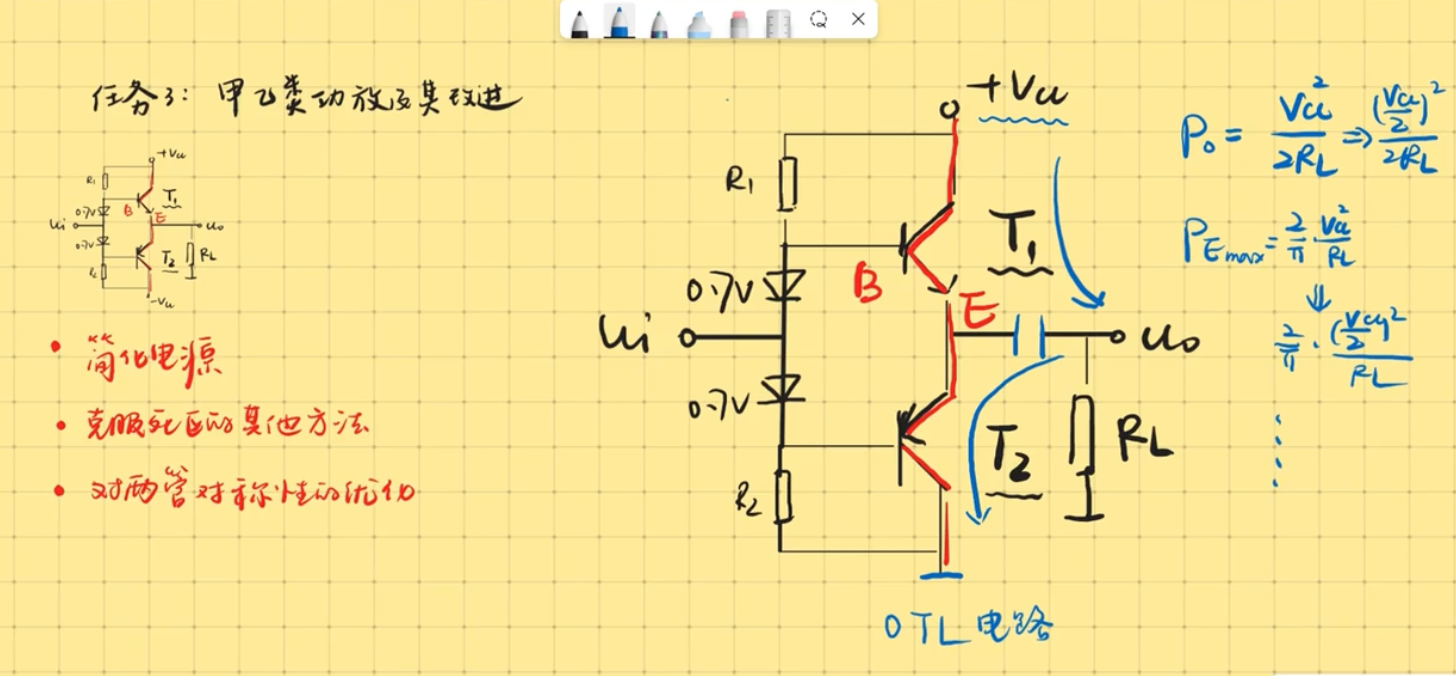 任务3: 甲乙类功放及其改进
+Vcc
R1
T1
B
E
0.7V
ui
uo
0.7V
T2
RL
R2
-Vcc
• 简化电源
• 克服死区的其他方法
• 对两管对称性的优化
+Vcc
R1
T1
0.7V
B
E
ui
uo
0.7V
T2
RL
R2
OTL电路
Po = Vcc²/2RL ⇒ (Vcc/2)²/2RL
PEmax = 2/π · Vcc²/RL
⇓
2/π · (Vcc/2)²/RL